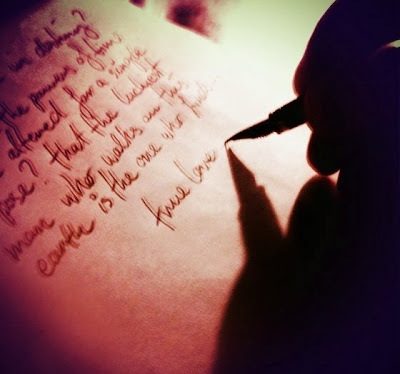 in destiny?
the powers of time
altered for a single
pose? that the luckiest
man who walks on this
earth is the one who finds
true love